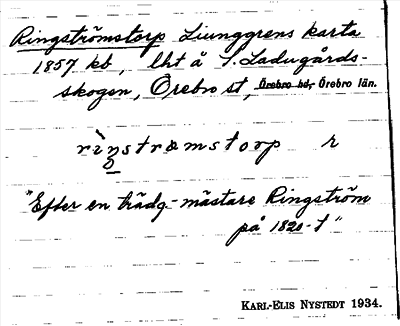 Ringströmstorp Liunggrens karta
1857 kb, lht å S. Ladugårds-
skogen, Örebro st, Örebro hd, Örebro län.
riŋstrømstorp r
"Efter en trädg-mästare Ringström
på 1820-t"
KARL-ELIS NYSTEDT 1934.